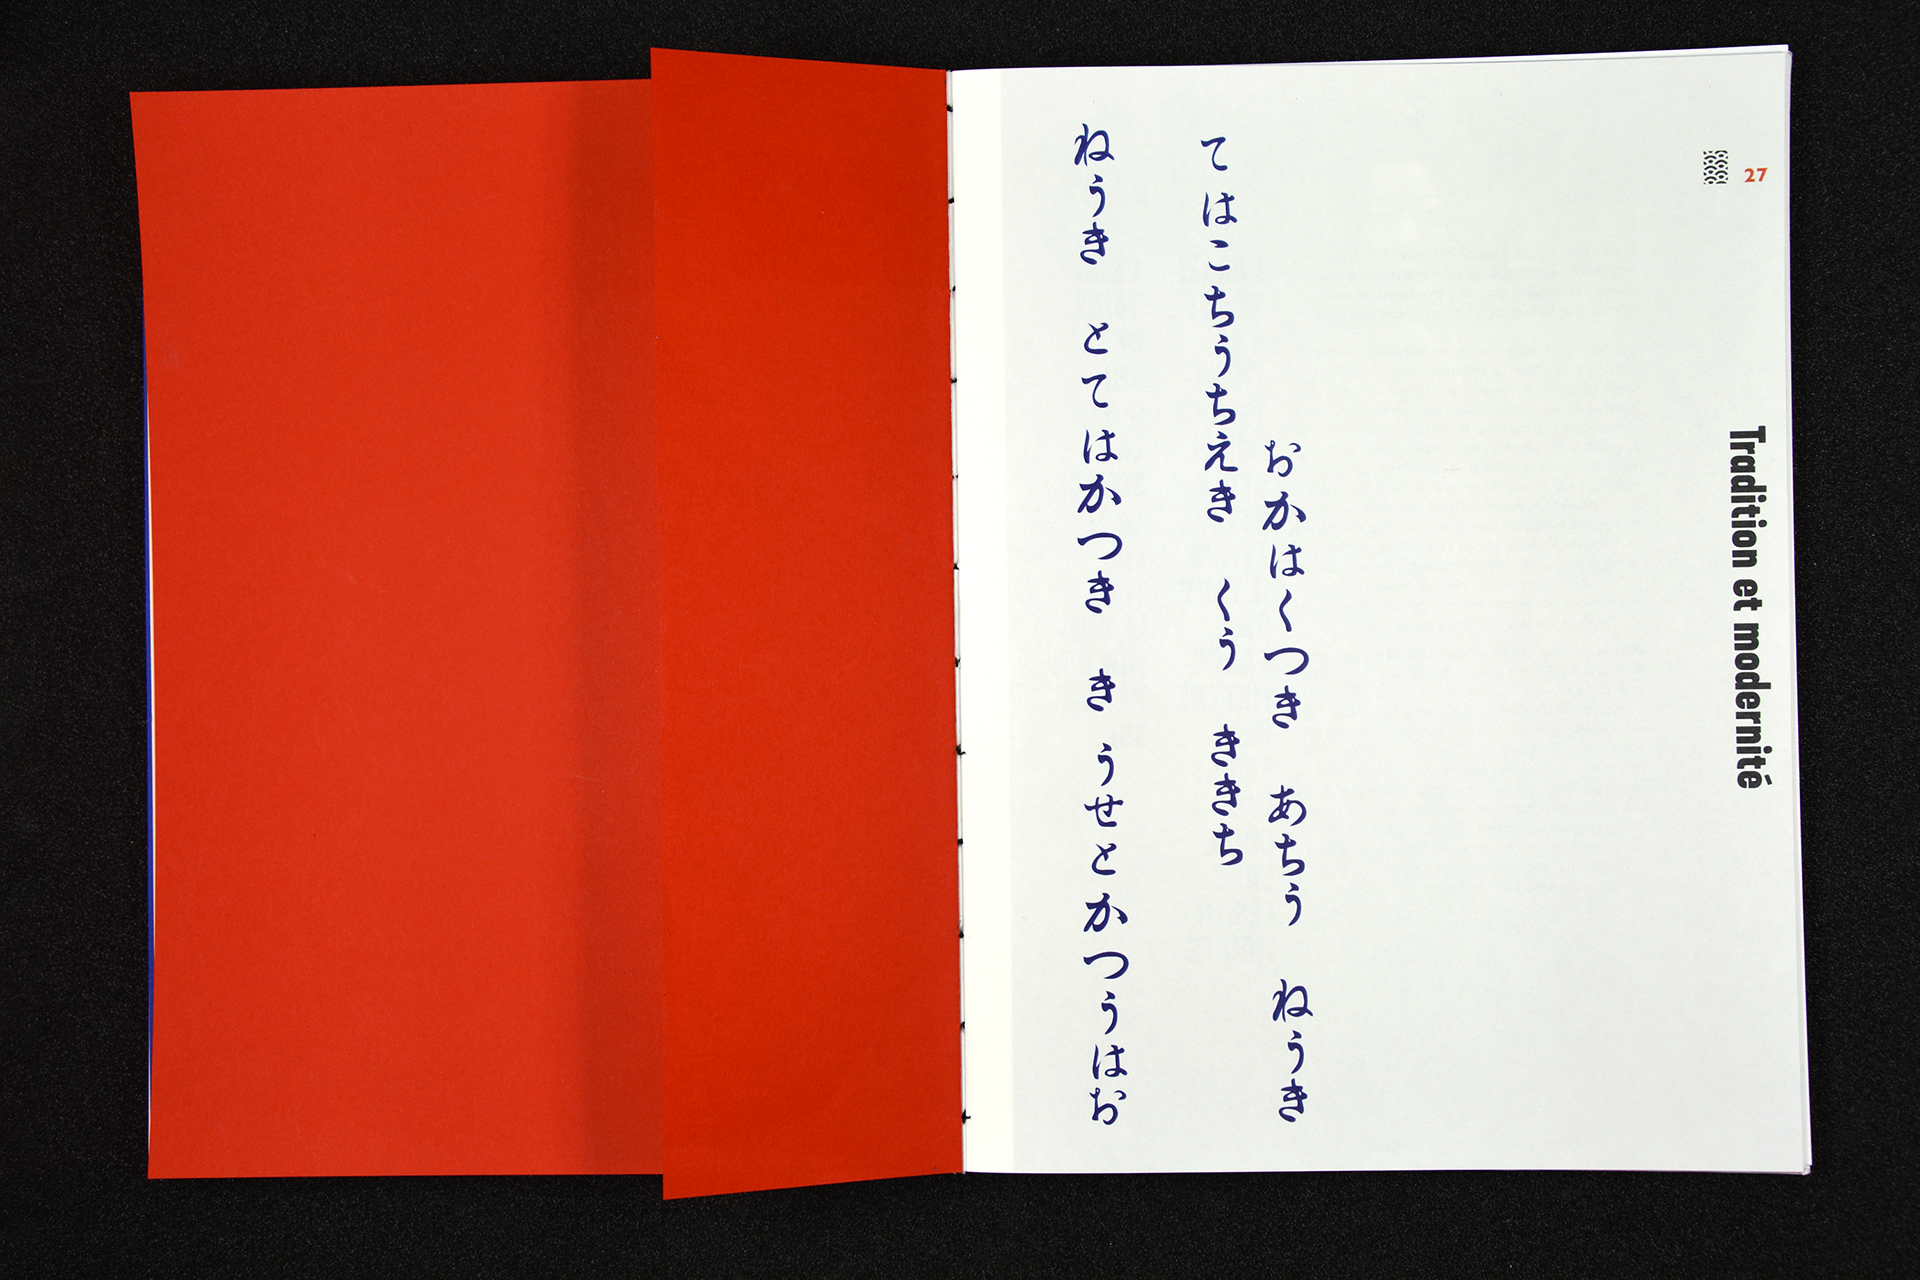 27
Tradition et modernité
おかはくつき あちう ねうき
てはこちうちえき くう ききち
ねうき とてはかつき き うせとかつうはお